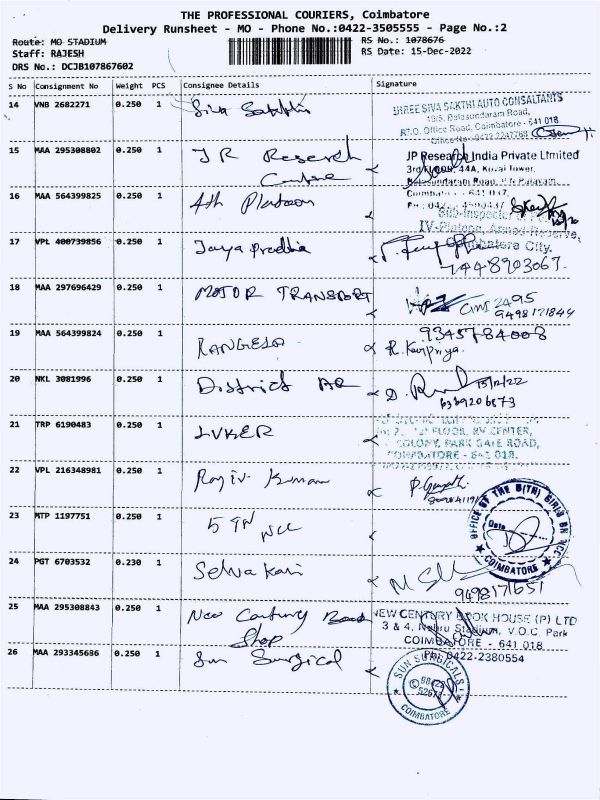 THE PROFESSIONAL COURIERS, Coimbatore
Delivery Runsheet - MO - Phone No.:0422-3505555 - Page No.:2
Route: MO STADIUM
RS No.: 1078676
Staff: RAJESH
RS Date: 15-Dec-2022
DRS No.: DCJB107867602
S No Consignment No Weight PCS Consignee Details Signature
14 VNB 2682271 0.250 1 Siva Sakthi
SHREE SIVA SAKTHI AUTO CONSULTANTS
Balasundaram Road,
R.T.O. Office Road, Coimbatore - 641 018
15 MAA 295308802 0.250 1 JR Research
Centre
JP Research India Private Limited
3rd Floor, 44A, Kovai Tower,
Balasundaram Road,
16 MAA 564399825 0.250 1 4th Platoon
Sub-Inspector
IV-Platoon, Armed Reserve,
Coimbatore City.
17 VPL 400739856 0.250 1 Jaya Pradha
7448903067
18 MAA 297696429 0.250 1 MOTOR TRANSPORT
2495
9498171844
19 MAA 564399824 0.250 1
9345784008
R. Karpriya.
20 NKL 3081996 0.250 1 District AR
D. 15/12/22
21 TRP 6190483 0.250 1 LUKER
FLOOR, RV CENTER,
COLONY, PARK GATE ROAD,
COIMBATORE - 641 018.
22 VPL 216348981 0.250 1 Rajiv Kumar
23 MTP 1197751 0.250 1 5 TN
NCC
OFFICE OF THE 5(TN) GIRLS BN NCC
Date
COIMBATORE
24 PGT 6703532 0.230 1 Selva Kani
9498171651
25 MAA 295308843 0.250 1 New Century Book
Shop
NEW CENTURY BOOK HOUSE (P) LTD
3 & 4, Nehru Stadium, V.O.C. Park
COIMBATORE - 641 018.
Ph: 0422-2380554
26 MAA 293345686 0.250 1 Sun Surgical
SUN SURGICALS
COIMBATORE